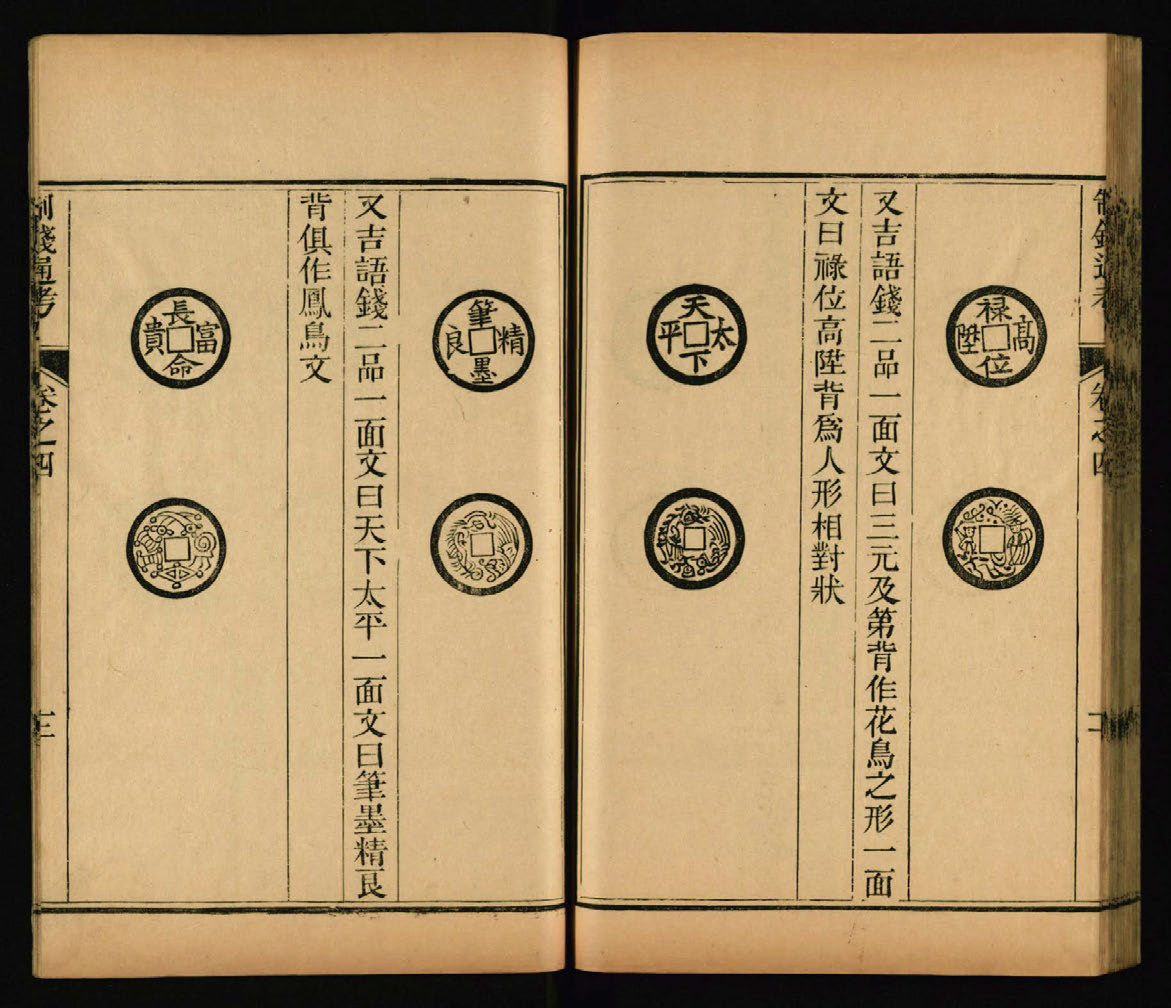 制錢通考
卷之四
二
禄位高陞
又吉語錢二品一面文曰三元及第背作花鳥之形一面
文曰祿位高陞背爲人形相對狀
天下太平
筆墨精良
又吉語錢二品一面文曰天下太平一面文曰筆墨精良
背俱作鳳鳥文
長命富貴
制錢通考
卷之四
三